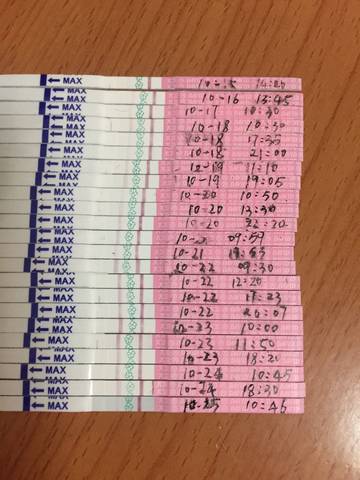 MAX 10-15 14:20
MAX 10-16 13:45
MAX 10-17 10:30
MAX 10-18 10:30
MAX 10-18 17:35
MAX 10-18 21:00
MAX 10-19 11:10
MAX 10-19 19:05
MAX 10-20 10:50
MAX 10-20 13:30
MAX 10-20 22:20
MAX 09:59
MAX 10-21
MAX 10-22 09:30
MAX 10-22 12:20
MAX 10-22 17:23
MAX 10-22 20:07
MAX 10-23 10:00
MAX 10-23 11:50
MAX 10-23 18:20
MAX 10-24 10:45
MAX 10-24 18:30
MAX 10-25 10:46